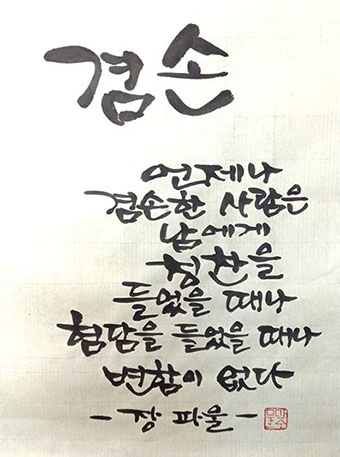 겸손
언제나
겸손한 사람은
남에게
칭찬을
들었을 때나
험담을 들었을 때나
변함이 없다
- 장 파울 -